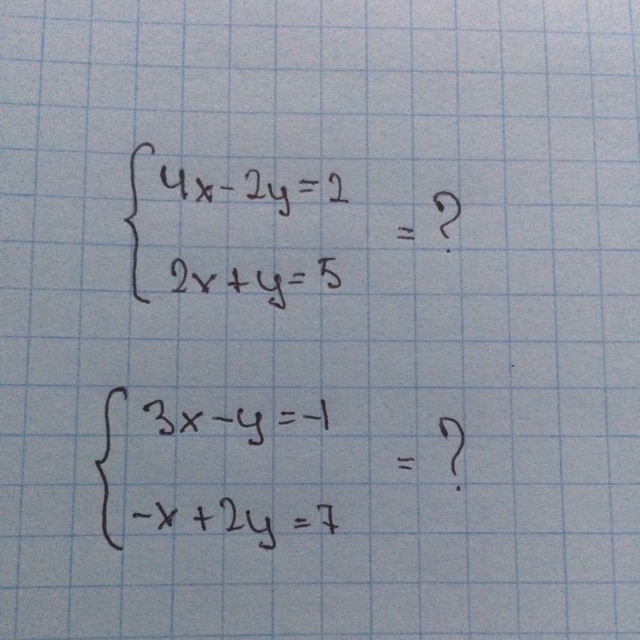 4x-2y=2
= ?
2x+y=5
3x-y=-1
= ?
-x+2y=7